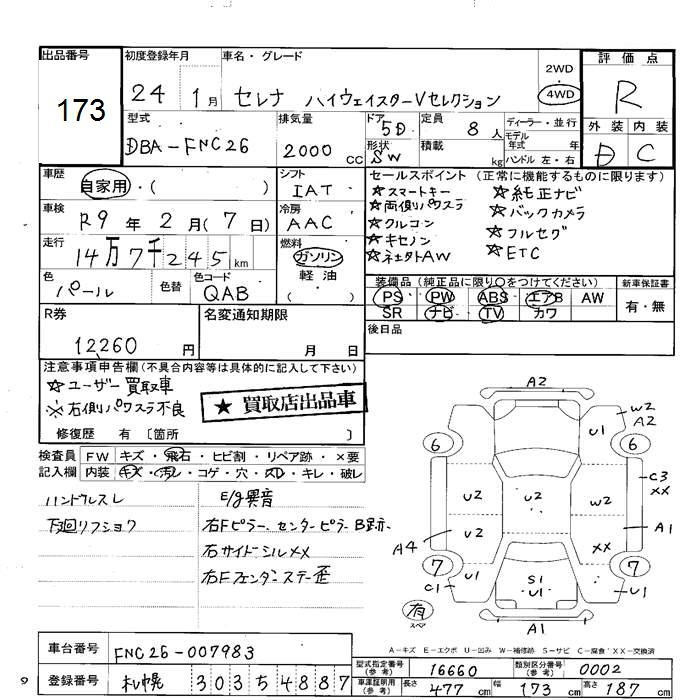 出品番号
173
初度登録年月
24 1月
車名・グレード
セレナ ハイウェイスターVセレクション
2WD
4WD
評価点
R
外装 内装
D C
型式
DBA-FNC26
排気量
2000 CC
ドア
5D
形状
SW
定員
8人
積載
kg
ディーラー・並行
モデル
年式 年
ハンドル 左・右
車歴
自家用・( )
シフト
IAT
車検
R9年2月(7日)
冷房
AAC
走行
14万7千245km
燃料
ガソリン
軽油
( )
色
パール
色替
色コード
QAB
セールスポイント (正常に機能するものに限ります)
☆スマートキー
☆両側パワスラ
☆クルコン
☆キセノン
☆純正ナビ
☆バックカメラ
☆フルセグ
☆ETC
装備品(純正品に限り○をつけてください)
PS PW ABS エアB AW
SR ナビ TV カワ
新車保証書
有・無
後日品
R券
12260円
名変通知期限
月 日
注意事項申告欄(不具合内容等は具体的に記入して下さい)
☆ユーザー買取車
※右側パワスラ不良
★買取店出品車
修復歴 有 〔箇所 〕
検査員
記入欄
FW キズ・飛石・ヒビ割・リペア跡・×要
内装 キズ・汚レ・コゲ・穴・スレ・キレ・破レ
ハンドルスレ
下廻リフショク
E/g異音
右Fピラー、センターピラーB跡
右サイドシルメメ
右Fフェンダーステー歪
A2
W2
A2
U1
6
6
C3
XX
U2
U2
W2
A4
U2
XX
A1
7
7
C1
U1
S1
U1
U1
U1
A1
有
スペア
A-キズ E-エクボ U-凹み W-補修跡 S-サビ C-腐食 XX-交換済
車台番号
FNC26-007983
登録番号
札幌 303 5 4887
型式指定番号
(参考)
16660
類別区分番号
(参考)
0002
車庫証明用
(参考)
長さ 477cm 幅 173cm 高さ 187cm